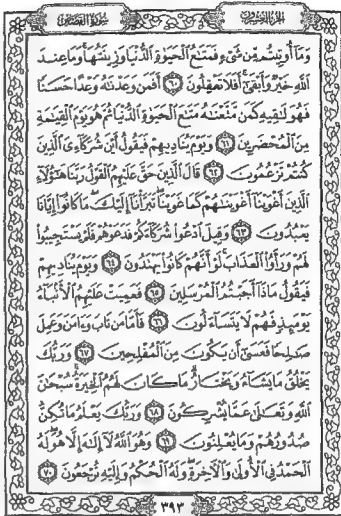 الجزء العشرون
سورة القصص
وَمَآ أُوتِيتُم مِّن شَىْءٍ فَمَتَٰعُ ٱلْحَيَوٰةِ ٱلدُّنْيَا وَزِينَتُهَا وَمَا عِندَ
ٱللَّهِ خَيْرٌ وَأَبْقَىٰٓ أَفَلَا تَعْقِلُونَ ٦٠ أَفَمَن وَعَدْنَٰهُ وَعْدًا حَسَنًا
فَهُوَ لَٰقِيهِ كَمَن مَّتَّعْنَٰهُ مَتَٰعَ ٱلْحَيَوٰةِ ٱلدُّنْيَا ثُمَّ هُوَ يَوْمَ ٱلْقِيَٰمَةِ
مِنَ ٱلْمُحْضَرِينَ ٦١ وَيَوْمَ يُنَادِيهِمْ فَيَقُولُ أَيْنَ شُرَكَآءِىَ ٱلَّذِينَ
كُنتُمْ تَزْعُمُونَ ٦٢ قَالَ ٱلَّذِينَ حَقَّ عَلَيْهِمُ ٱلْقَوْلُ رَبَّنَا هَٰٓؤُلَآءِ
ٱلَّذِينَ أَغْوَيْنَآ أَغْوَيْنَٰهُمْ كَمَا غَوَيْنَا تَبَرَّأْنَآ إِلَيْكَ مَا كَانُوٓا۟ إِيَّانَا
يَعْبُدُونَ ٦٣ وَقِيلَ ٱدْعُوا۟ شُرَكَآءَكُمْ فَدَعَوْهُمْ فَلَمْ يَسْتَجِيبُوا۟
لَهُمْ وَرَأَوُا۟ ٱلْعَذَابَ لَوْ أَنَّهُمْ كَانُوا۟ يَهْتَدُونَ ٦٤ وَيَوْمَ يُنَادِيهِمْ
فَيَقُولُ مَاذَآ أَجَبْتُمُ ٱلْمُرْسَلِينَ ٦٥ فَعَمِيَتْ عَلَيْهِمُ ٱلْأَنۢبَآءُ
يَوْمَئِذٍ فَهُمْ لَا يَتَسَآءَلُونَ ٦٦ فَأَمَّا مَن تَابَ وَءَامَنَ وَعَمِلَ
صَٰلِحًا فَعَسَىٰٓ أَن يَكُونَ مِنَ ٱلْمُفْلِحِينَ ٦٧ وَرَبُّكَ
يَخْلُقُ مَا يَشَآءُ وَيَخْتَارُ مَا كَانَ لَهُمُ ٱلْخِيَرَةُ سُبْحَٰنَ
ٱللَّهِ وَتَعَٰلَىٰ عَمَّا يُشْرِكُونَ ٦٨ وَرَبُّكَ يَعْلَمُ مَا تُكِنُّ
صُدُورُهُمْ وَمَا يُعْلِنُونَ ٦٩ وَهُوَ ٱللَّهُ لَآ إِلَٰهَ إِلَّا هُوَ لَهُ
ٱلْحَمْدُ فِى ٱلْأُولَىٰ وَٱلْءَاخِرَةِ وَلَهُ ٱلْحُكْمُ وَإِلَيْهِ تُرْجَعُونَ ٧٠
٣٩٣